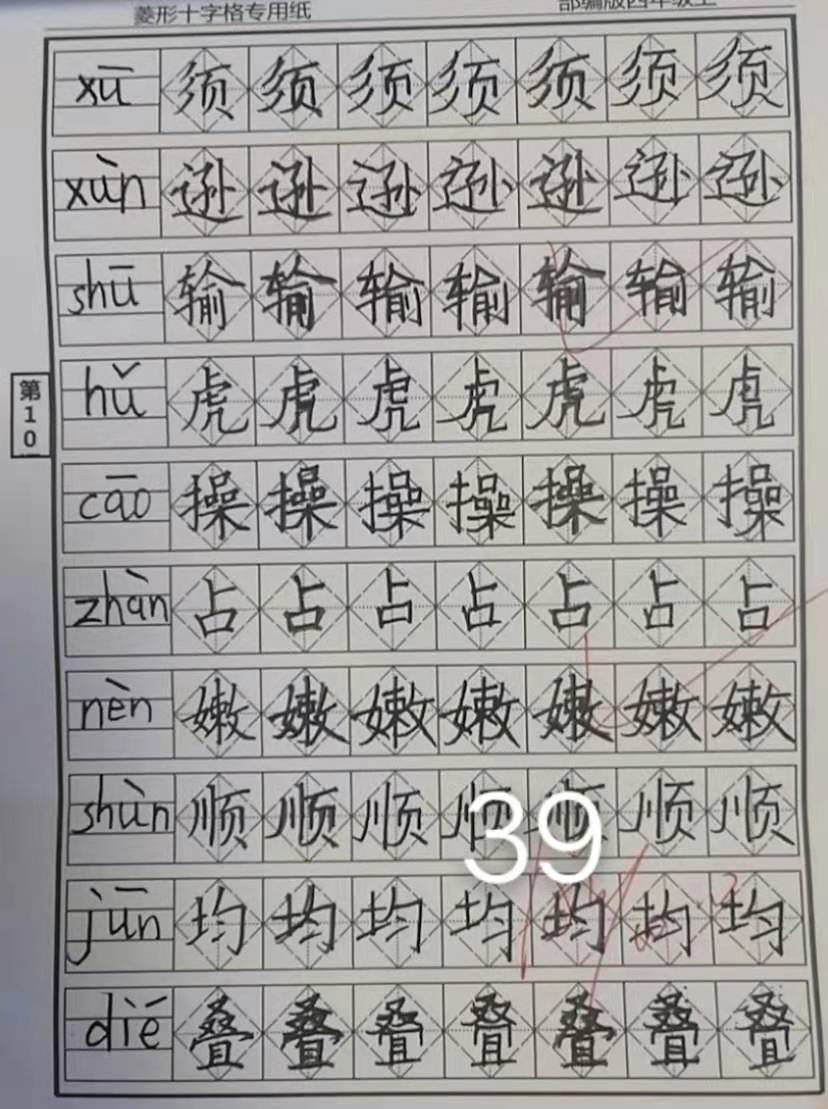 菱形十字格专用纸 部编版四年级上
xū 须 须 须 须 须 须 须
xùn 逊 逊 逊 逊 逊 逊 逊
shū 输 输 输 输 输 输 输
hǔ 虎 虎 虎 虎 虎 虎 虎
第10
cāo 操 操 操 操 操 操 操
zhàn 占 占 占 占 占 占 占
nèn 嫩 嫩 嫩 嫩 嫩 嫩 嫩
shùn 顺 顺 顺 顺 顺 顺 顺
39
jūn 均 均 均 均 均 均 均
dié 叠 叠 叠 叠 叠 叠 叠